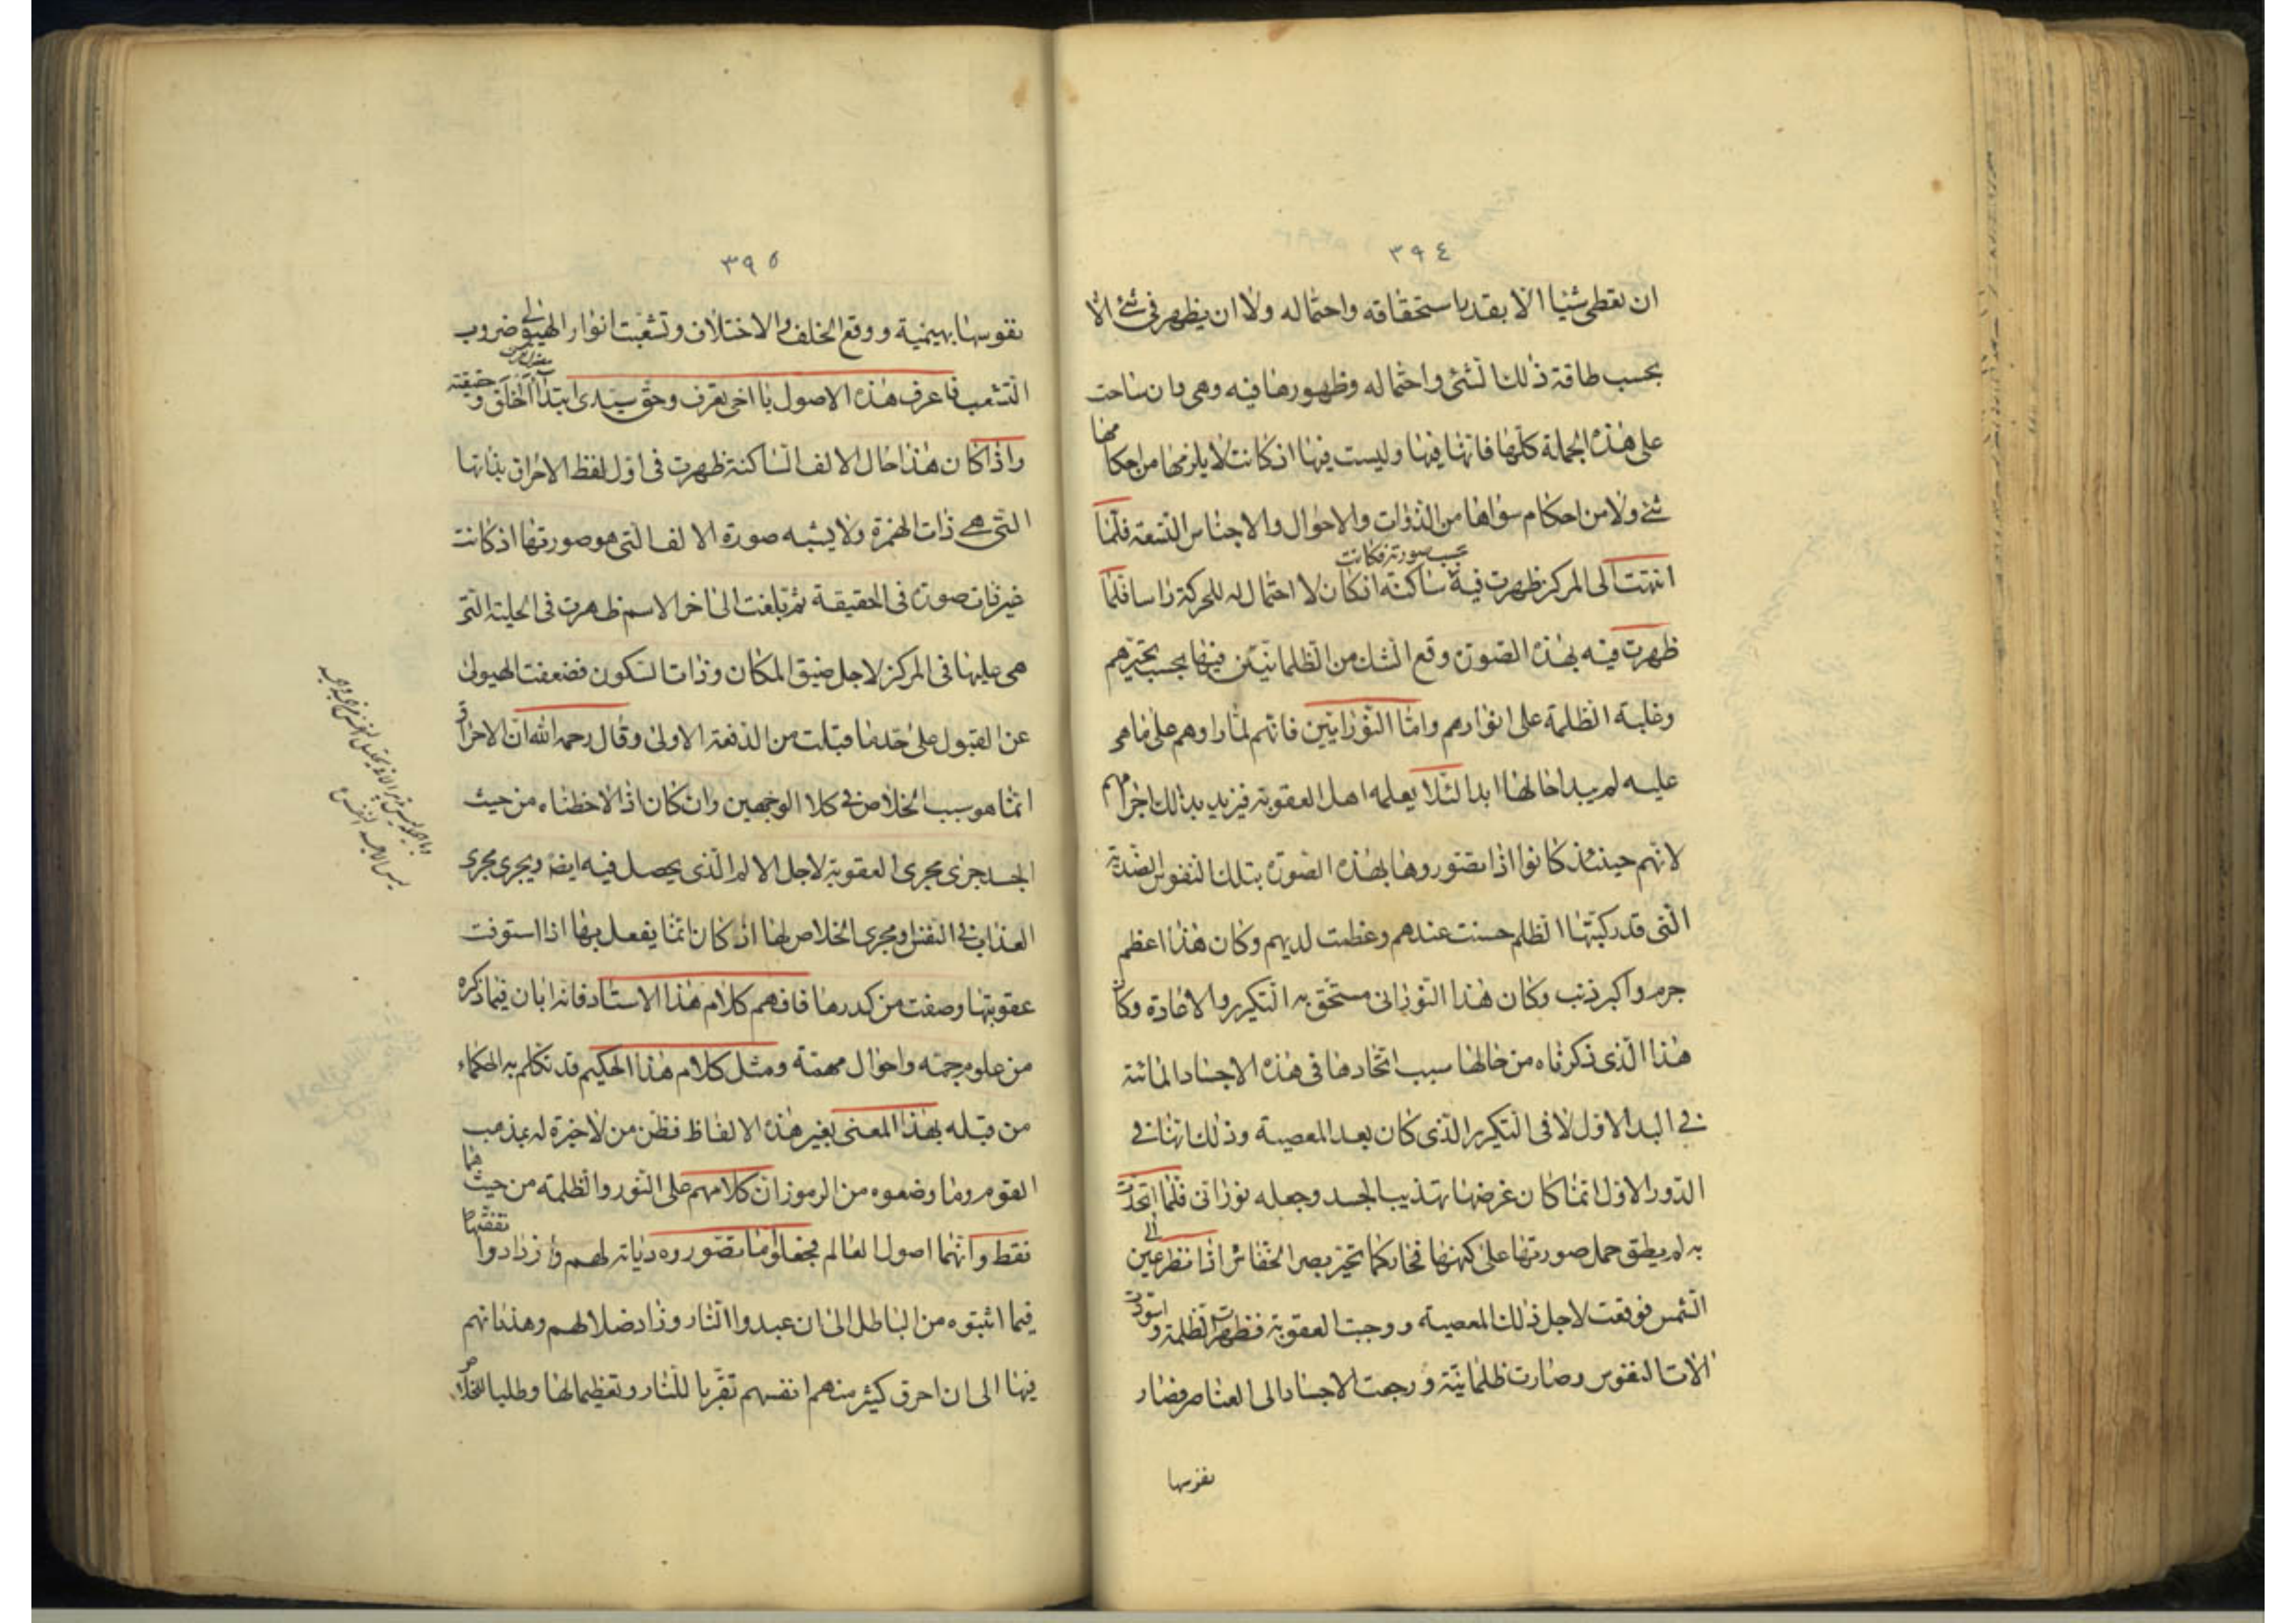 ٣٩٤
ان تعطى شيئا الا بقدر استحقاقه واحتماله ولا ان يظهر فى شئ الا
بحسب طاقة ذلك الشئ واحتماله وظهورها فيه وهى وان ساحت
على هذه الجملة كلها فانها فيها وليست فيها اذ كانت لا يلزمها من احكامها
شئ ولا من احكام سواها من الذوات والاحوال والاجناس التسعة فلما
انتهت الى المركز ظهرت فيه بحسب صورته فكانت ساكنة اذ كان لا احتمال له للحركة راسا فلما
ظهرت فيه بهذه الصورة وقع الشك من الظلمانيين فيها بحسب تحيزهم
وغلبة الظلمة على انوارهم واما النورانيين فانهم لما راوهم على ما هى
عليه لم يبد احالها ابدا لئلا يعلمه اهل العقوبة فيزيد بذلك اجرامهم
لانهم حينئذ كانوا اذا تصوروها بهذه الصورة بتلك النفوس الضدية
التى قد ركبتها الظلم حسنت عندهم وعظمت لديهم وكان هذا اعظم
جرم واكبر ذنب وكان هذا النورانى مستحق به التكرير والاعادة وكان
هذا الذى ذكرناه من حالها سبب اتحادها فى هذه الاجساد المائتة
فى البدا الاول لا فى التكرير الذى كان بعد المعصية وذلك انها فى
الدور الاول انما كان غرضها تهذيب الجسد وجعله نورانى فلما اتحدت
به لم يطق حمل صورتها على كنهها فحار كما تحيز بصر الخفاش اذا نظر الى عين
الشمس فوقعت لاجل ذلك المعصية ووجبت العقوبة فظهرت الظلمة واسودت
الات النفوس وصارت ظلمانية ورجعت الاجساد الى العناصر فصار
نفوسها
٣٩٥
نفوسها بهيمية ووقع الخلف والاختلاف وتشعبت انوار الهيولى ضروب
التشعب فاعرف هذه الاصول يا اخى تعرف وحق سيدى ابتدا الخلق وحقيقته
واذا كان هذا حال الالف الساكنة ظهرت فى اول لفظ الاحراق بذاتها
التى هى ذات الهمزة ولا يشبه صورة الالف التى هو صورتها اذ كانت
غير ذات صورة فى الحقيقة ثم بلغت الى اخر الاسم ظهرت فى الحلية التى
هى عليها فى المركز لاجل ضيق المكان وذات السكون فضعفت الهيولى
عن القبول على حد ما قبلت من الدفعة الاولى وقال رحمه الله ان الاحراق
انما هو سبب الخلاص فى كلا الوجهين وان كان اذ الاحظناه من حيث
الجسد جرى مجرى العقوبة لاجل الالم الذى يحصل فيه ايضا ويجرى مجرى
العذاب فى النفس ومجرى الخلاص لها اذ كان انما يفعل بها اذا استوفت
عقوبتها وصفت من كدرها فافهم كلام هذا الاستاد فانه ابان فيما ذكره
من علوم جمة واحوال مهمة ومثل كلام هذا الحكيم قد تكلم به الحكماء
من قبله بهذا المعنى بغير هذه الالفاظ فظن من لا خبرة له بمذهب
القوم وما وضعوه من الرموز ان كلامهم على النور والظلمة من حيث هما
فقط وانهما اصول العالم فجعلوا ما تصوروه ديانة لهم وازدادوا تفقها
فيما اثبتوه من الباطل الى ان عبدوا النار وزاد ضلالهم وهذيانهم
فيها الى ان احرق كثير منهم انفسهم تقربا للنار وتعظيما لها وطلبا للخلاص